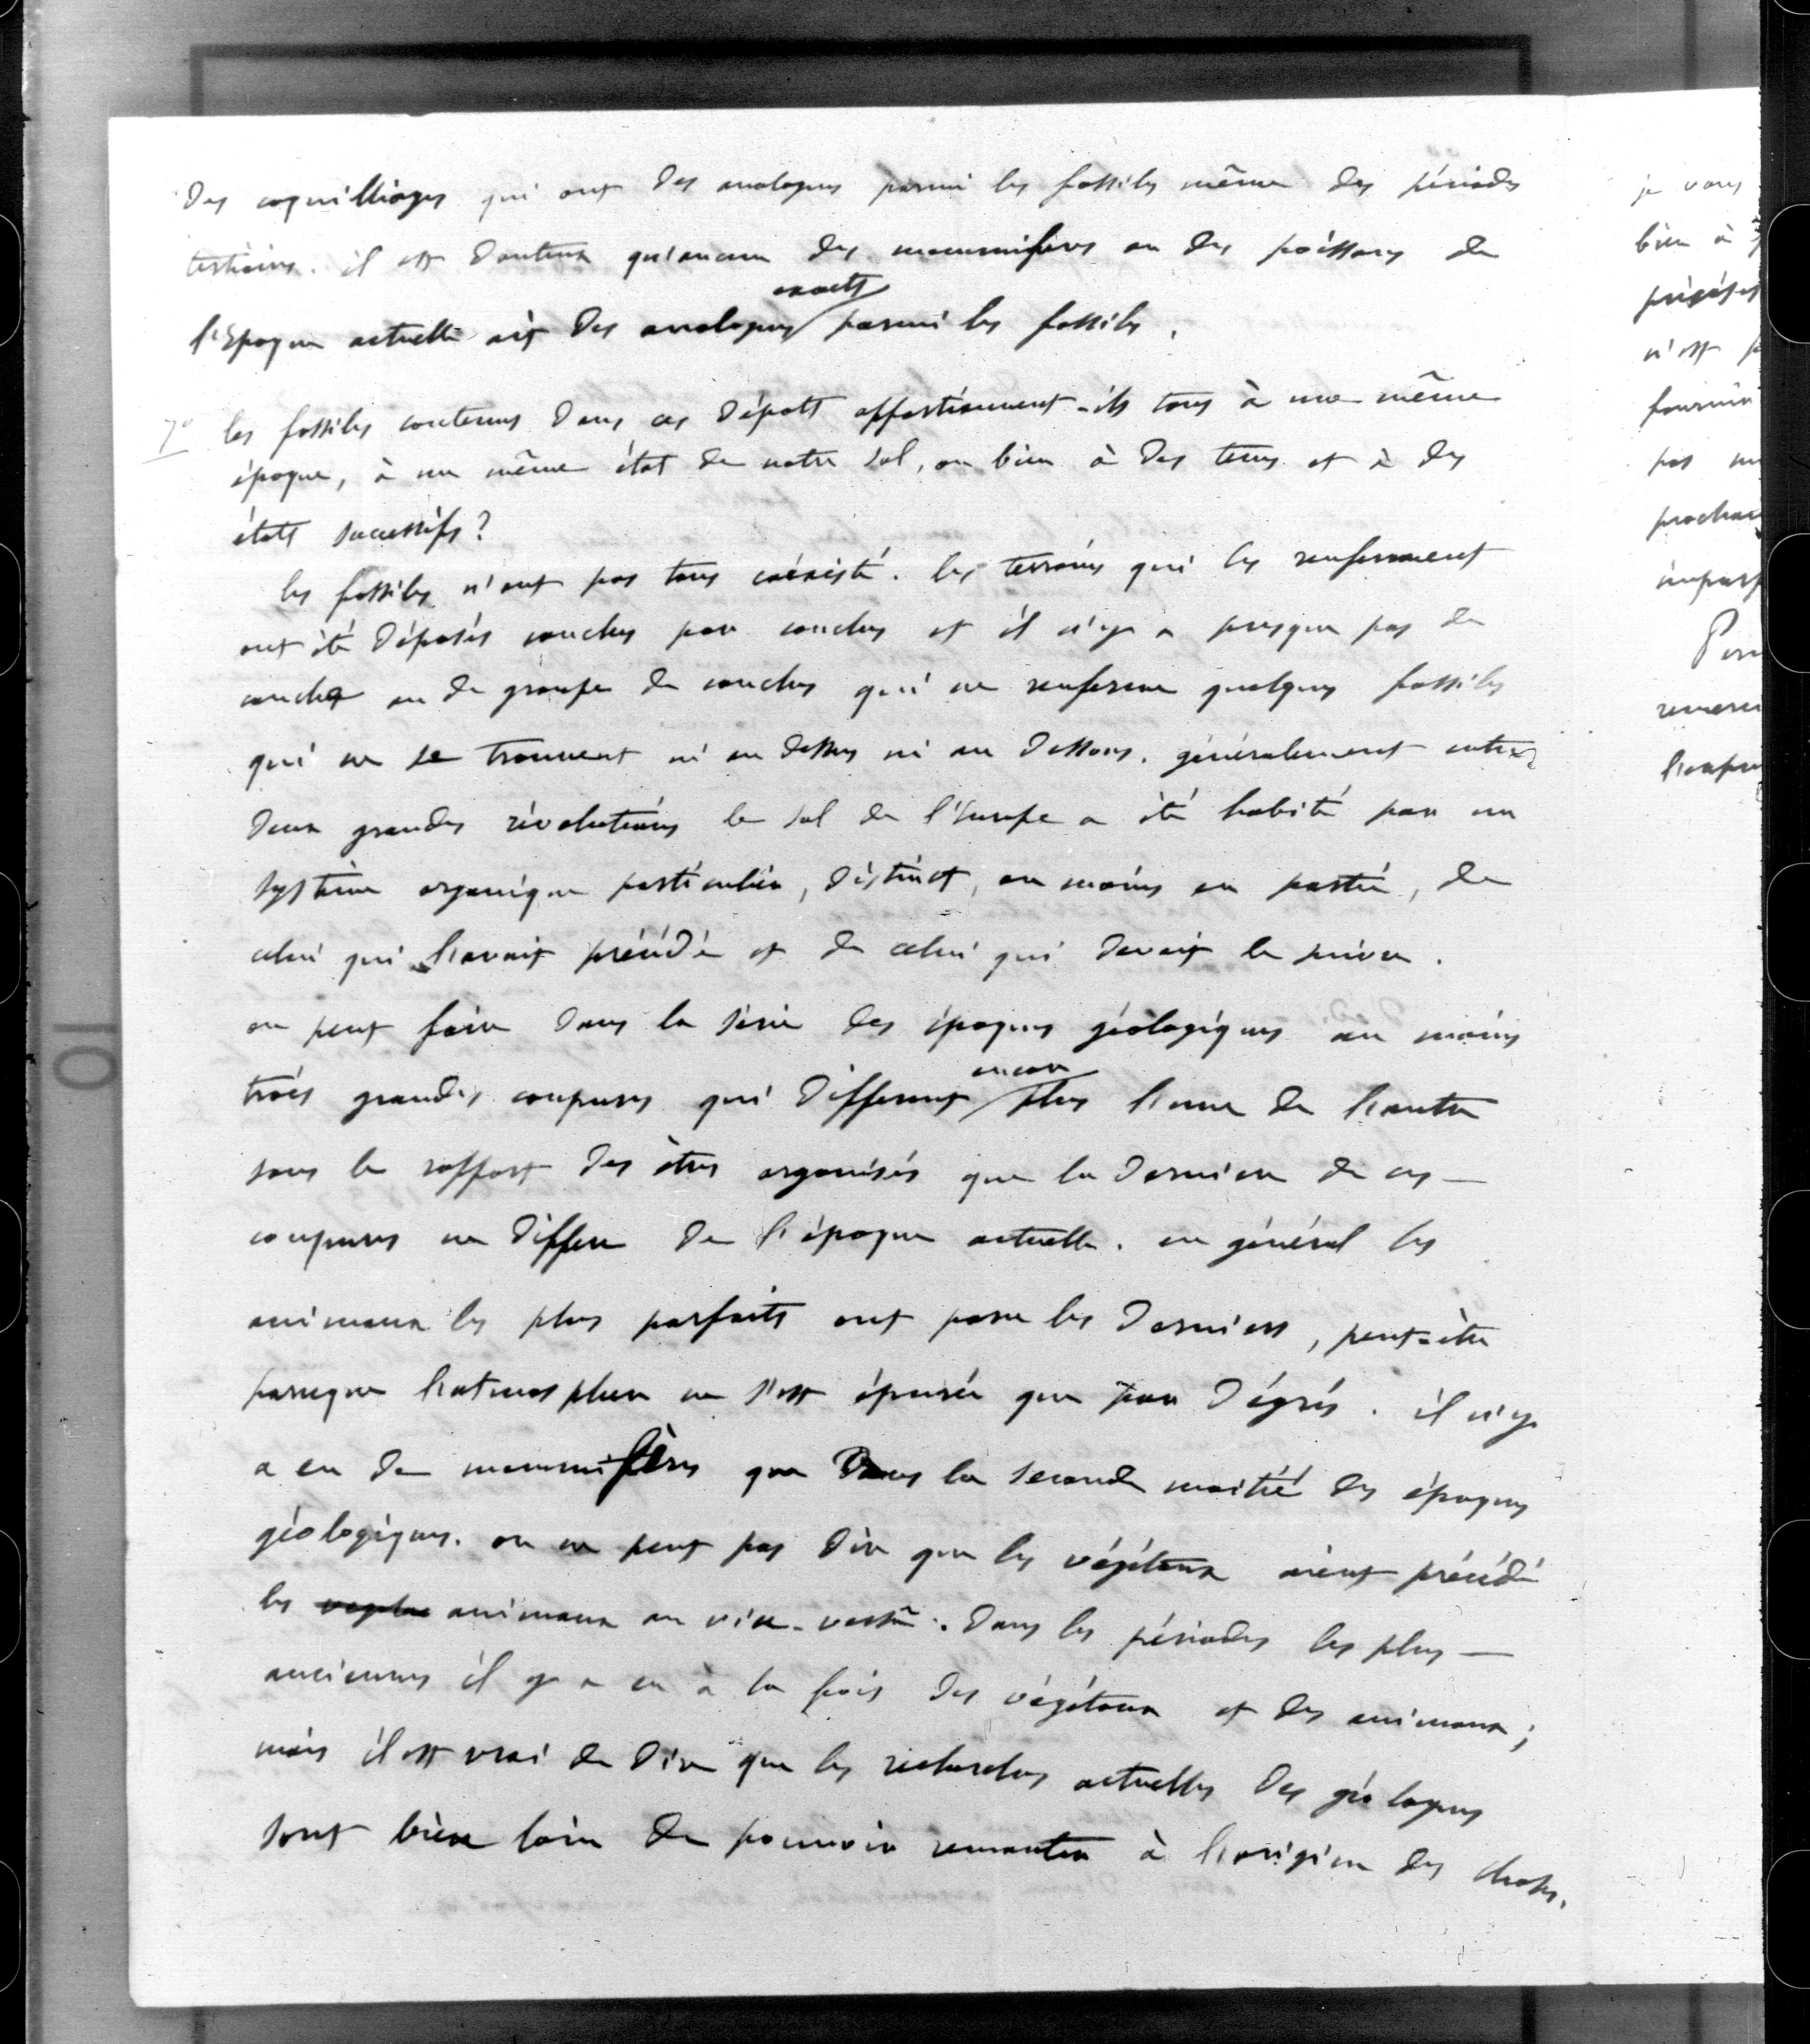 des coquilliages qui ont des analogues parmi les fossiles même des périodes
tertiaires. il est douteux qu'aucun des mammifères ou des poissons de
l'Epoque actuelle ait des analogues exacts parmi les fossiles.
7° les fossiles contenus dans ces dépots appartiennent-ils tous à une même
époque, à un même état de notre sol, ou bien à des tems et à des
états successifs?
les fossiles n'ont pas tous coéxisté. les terrains qui les renferment
ont été déposés couches par couches et il n'y a presque pas de
couche ou de groupe de couches qui ne renferme quelques fossiles
qui ne se trouvent ni au dessus ni au dessous. généralement entre
deux grandes révolutions le sol de l'Europe a été habité par un
système organique particulier, distinct, au moins en partie, de
celui qui l'avait précédé et de celui qui devait le suivre.
on peut faire dans la série des époques géologiques au moins
trois grandes coupures qui different encore plus l'une de l'autre
sous le rapport des êtres organisés que la derniere de ces
coupures ne differe de l'époque actuelle. en général les
animaux les plus parfaits ont paru les derniers, peut-être
parceque l'atmosphere ne s'est épurée que par dégrés. il n'y
a eu de mammifères que dans la seconde moitié des époques
géologiques. on ne peut pas dire que les végétaux aient précédé
les animaux ou vice-versâ. dans les périodes les plus
anciennes il y a eu à la fois des végétaux et des animaux;
mais il est vrai de dire que les recherches actuelles des géologues
sont bien loin de pouvoir remonter à l'origine des choses.
je vous
bien à
n'est
pas